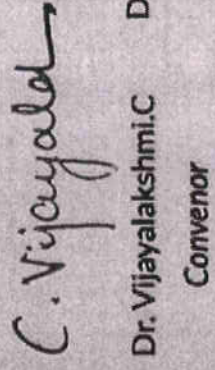 C. Vijayalak
Dr. Vijayalakshmi.C D
Convenor